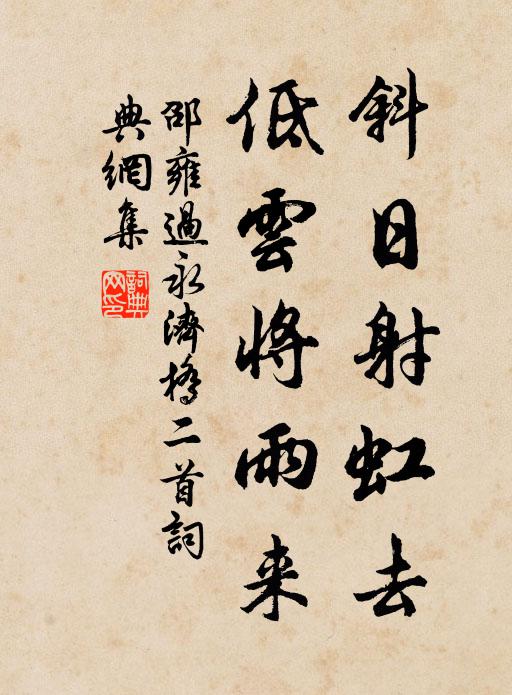 斜日射虹去
低雲將雨来
邵雍過永濟橋二首詞
典網集
詞典网印